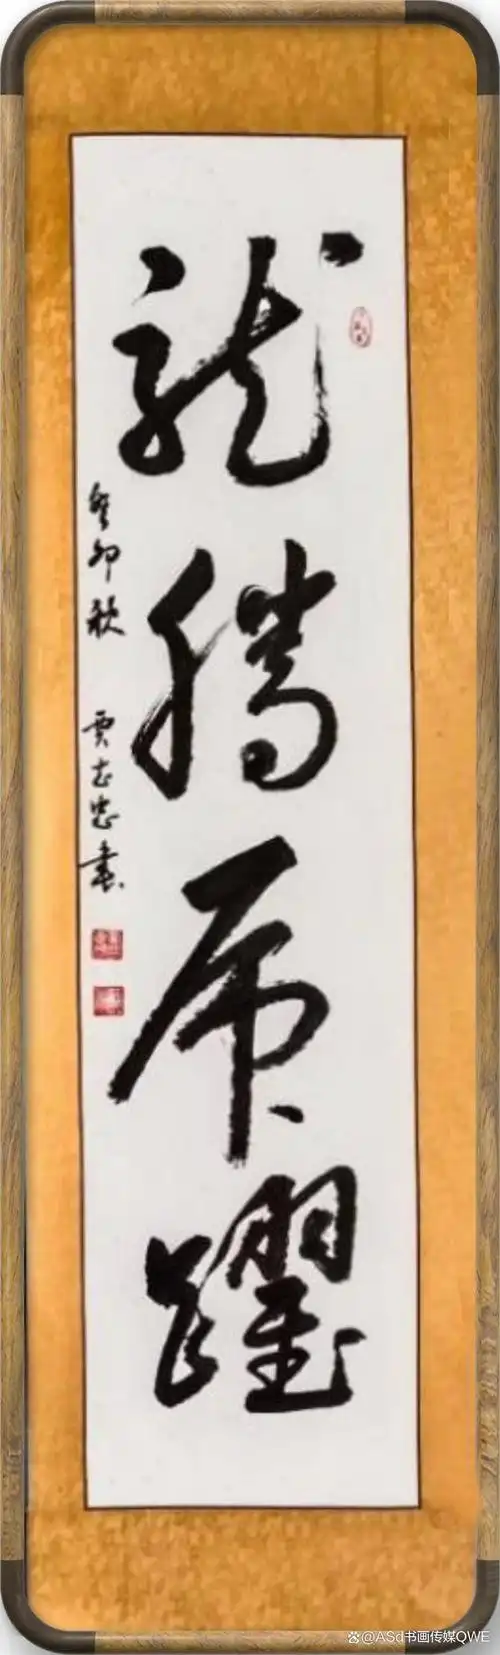 龍騰虎躍
癸卯秋 贾志忠書
@ASd书画传媒QWE